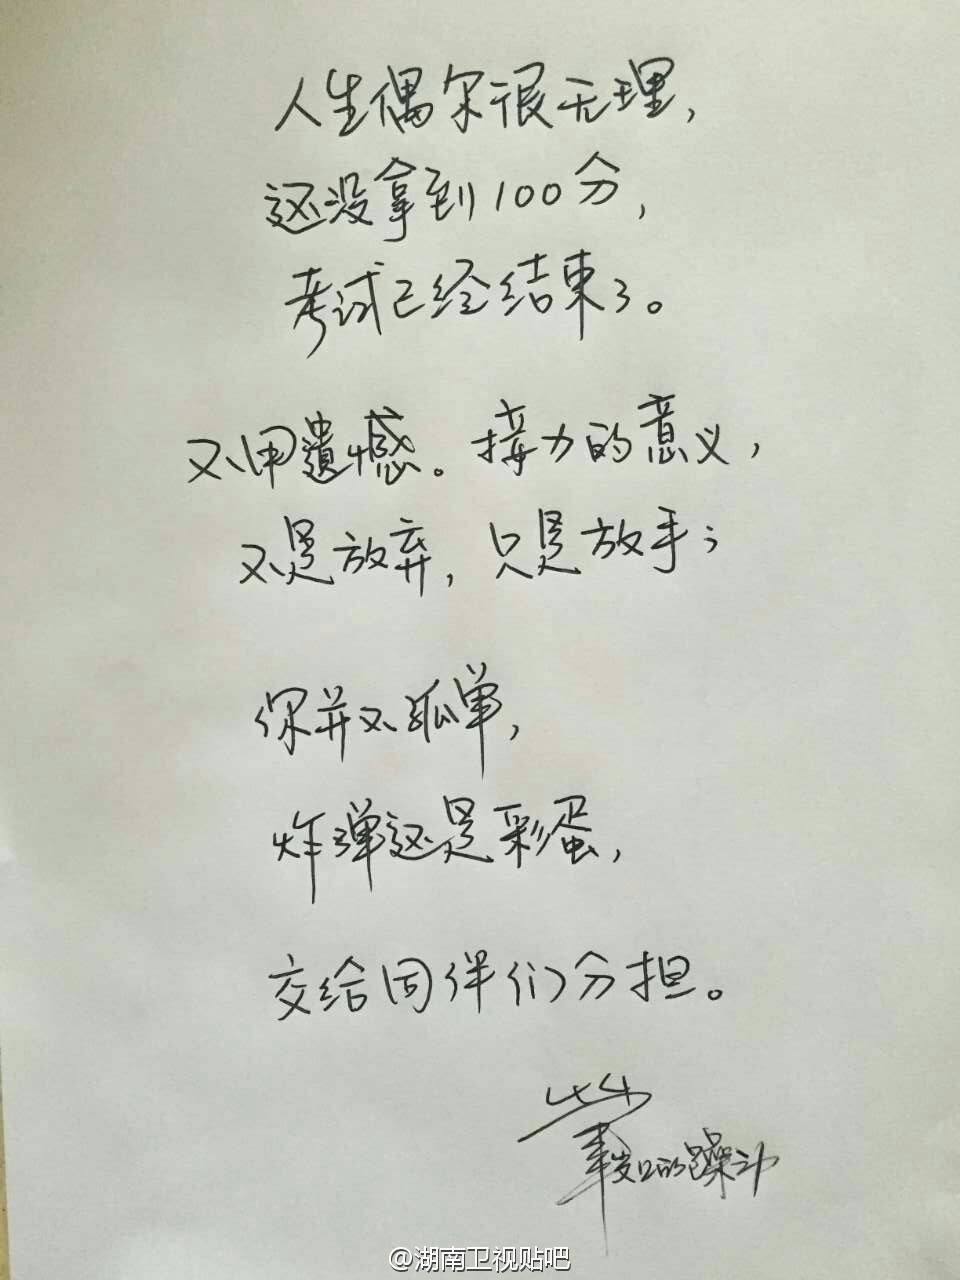 人生偶尔很无理，
还没拿到100分，
考试已经结束了。
不用遗憾。接力的意义，
不是放弃，只是放手；
你并不孤单，
炸弹还是彩蛋，
交给同伴们分担。
的躁动
@湖南卫视贴吧